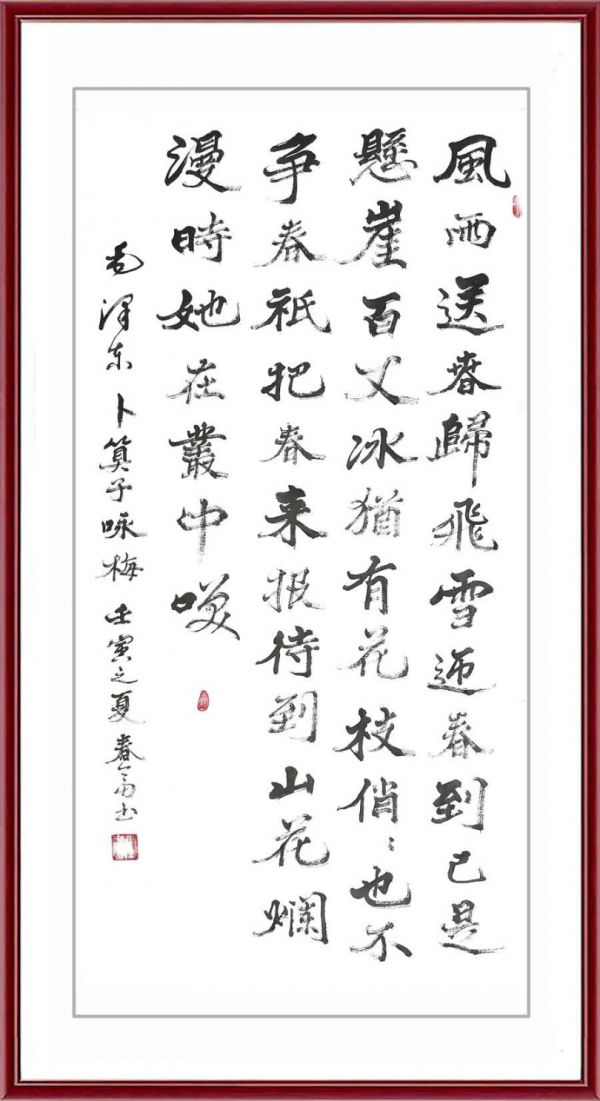 風雨送春歸飛雪迎春到已是
懸崖百丈冰猶有花枝俏〻也不
争春祇把春来报待到山花爛
漫時她在叢中咲
毛泽东卜算子咏梅壬寅之夏春富书